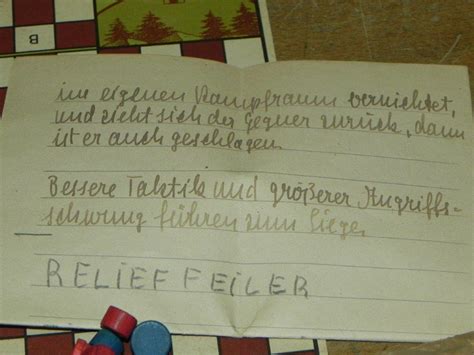 B
im eigenen Kampfraum vernichtet,
und zieht sich der Gegner zurück, dann
ist er auch geschlagen.
Bessere Taktik und größerer Angriffs-
schwung führen zum Siege.
RELIEFFEILER